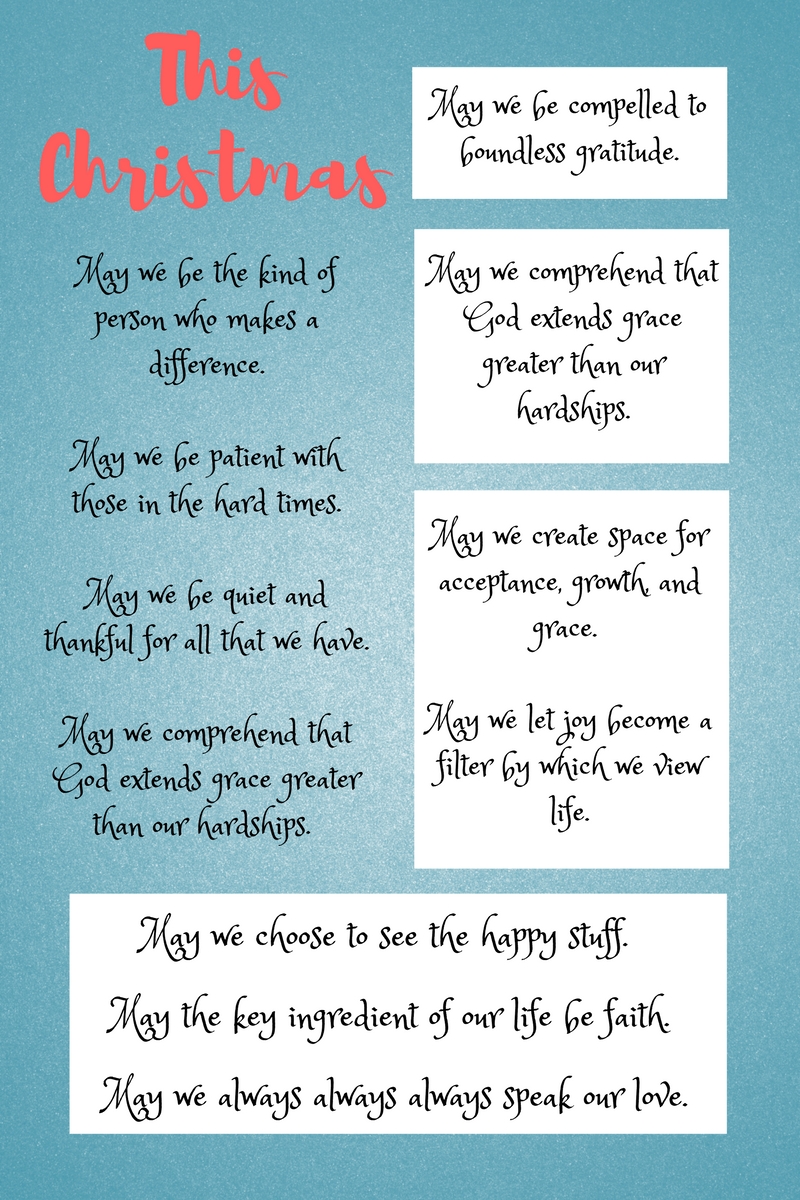 This
Christmas
May we be the kind of
person who makes a
difference.
May we be patient with
those in the hard times.
May we be quiet and
thankful for all that we have.
May we comprehend that
God extends grace greater
than our hardships.
May we be compelled to
boundless gratitude.
May we comprehend that
God extends grace
greater than our
hardships.
May we create space for
acceptance, growth, and
grace.
May we let joy become a
filter by which we view
life.
May we choose to see the happy stuff.
May the key ingredient of our life be faith.
May we always always always speak our love.